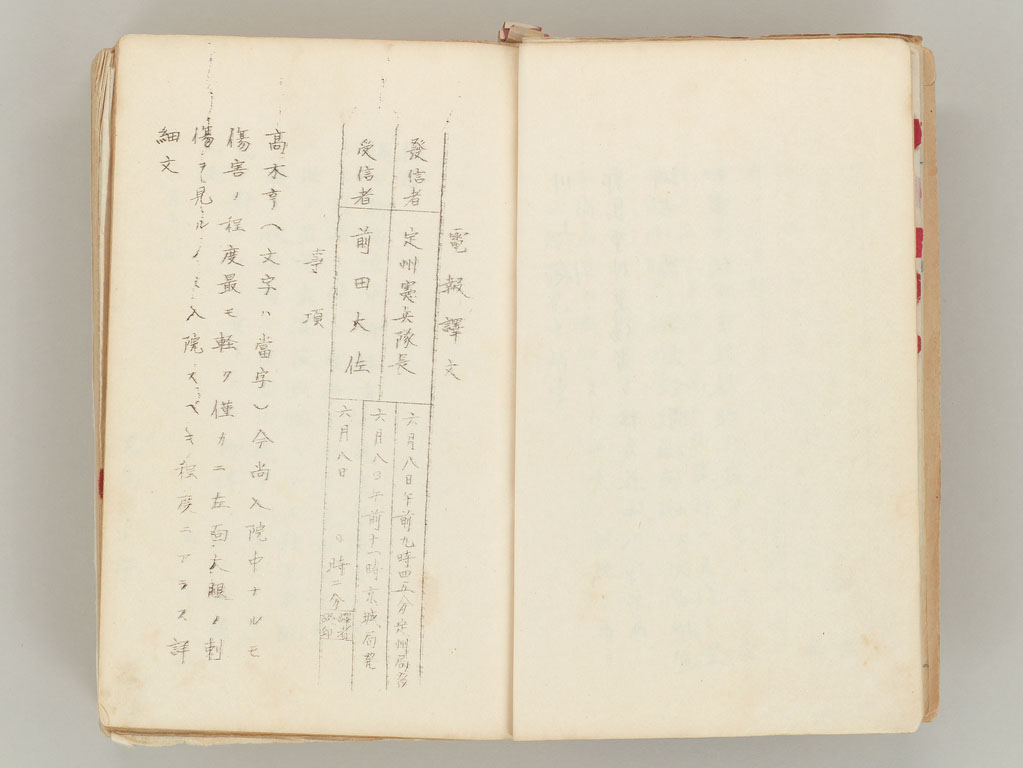 電報譯文
發信者 定州憲兵隊長 六月八日午前九時四五分定州局發
受信者 前田大佐 六月八日午前十一時京城局
六月八日 時二分
事項
高木亨(文字ハ當字)今尚入院中ナルモ
傷害ノ程度最モ軽ク僅カニ左面大腿ノ刺
傷ヲ見ル ミ入院スベキ程度ニアラス詳
細文